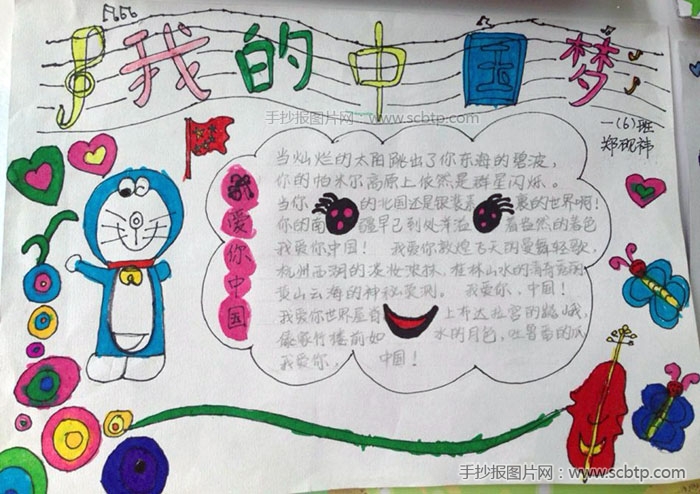 我的中国梦
手抄报图片网：www.scbtp.com
一(6)班
郑砚祎
我爱你中国
当灿烂的太阳跳出了你东海的碧波，
你的帕米尔高原上依然是群星闪烁。
当你 的北国还是银装素 裹的世界啊！
你的南 疆早已到处洋溢 着盎然的春色
我爱你中国！ 我爱你敦煌飞天的曼舞轻歌，
杭州西湖的淡妆浓抹，桂林山水的清奇
黄山云海的神秘莫测。 我爱你，中国！
我爱你世界屋脊 上布达拉宫的巍峨，
傣家竹楼前如 水的月色，吐鲁番的瓜
我爱你， 中国！
手抄报图片网：www.scbtp.com